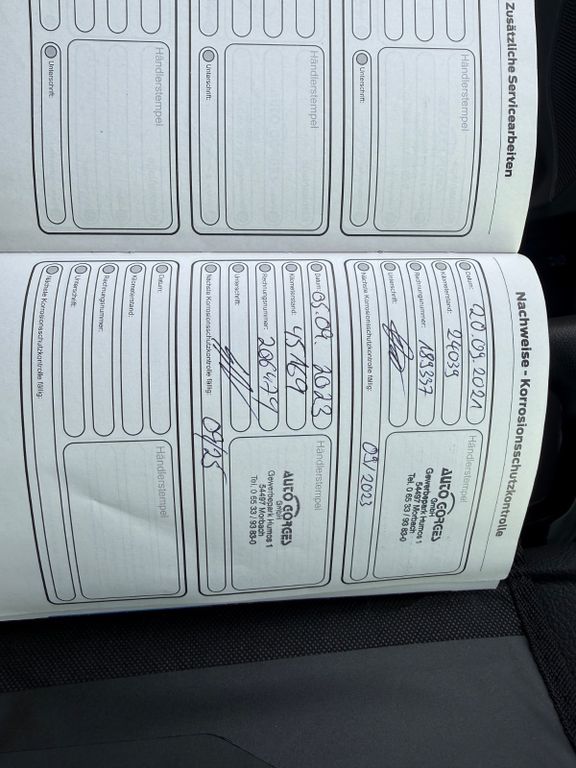 Zusätzliche Servicearbeiten
Händlerstempel
Unterschrift:
Händlerstempel
Unterschrift:
Händlerstempel
Unterschrift:
Nachweise - Korrosionsschutzkontrolle
Datum: 20.09.2021
Kilometerstand: 24039
Rechnungsnummer: 189337
Unterschrift:
Nächste Korrosionsschutzkontrolle fällig: 09/2023
Händlerstempel
AUTO GORGES
GmbH
Gewerbepark Humos 1
54497 Morbach
Tel. 0 65 33 / 93 83-0
Datum: 05.09.2023
Kilometerstand: 45169
Rechnungsnummer:
Unterschrift:
Nächste Korrosionsschutzkontrolle fällig: 09/25
Händlerstempel
AUTO GORGES
GmbH
Gewerbepark Humos 1
54497 Morbach
Tel. 0 65 33 / 93 83-0
Datum:
Kilometerstand:
Rechnungsnummer:
Unterschrift:
Nächste Korrosionsschutzkontrolle fällig:
Händlerstempel